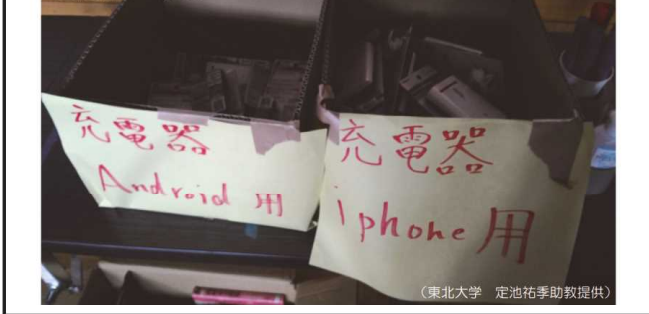 充電器
Android 用
充電器
iphone 用
(東北大学 定池祐季助教提供)